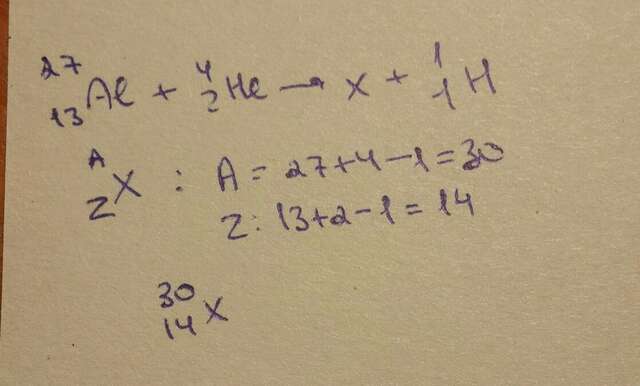 ²⁷₁₃Al + ⁴₂He → X + ¹₁H
ᴬ_Z X : A = 27+4-1=30
Z: 13+2-1=14
³⁰₁₄X